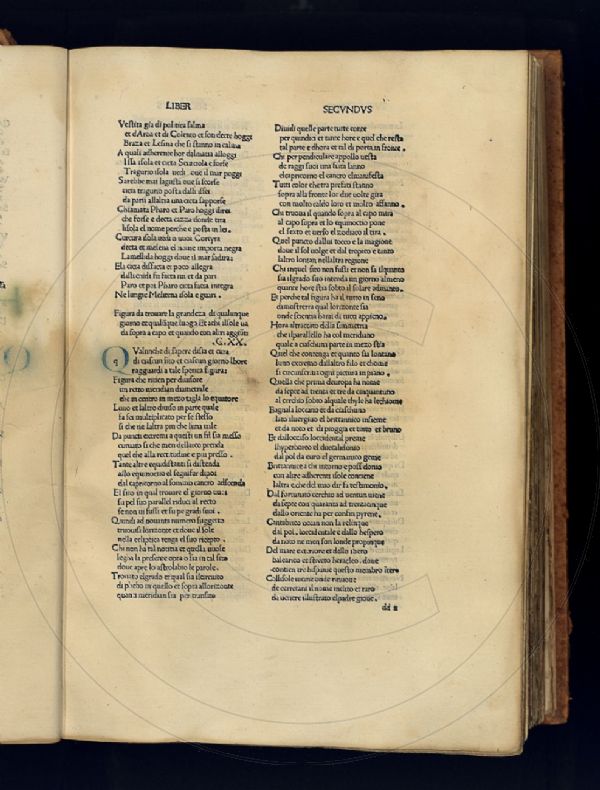 LIBER
Vestita gia di politica salma
et dArba et di Colento et son decte hoggi
Braza et Lesina che si stanno in calma
A quali adherente hor dalmatia alloggi
Issa isola et cicta
Tragurio isola uedi oue il mar poggi
Sarebbe mai lagusta due si scorse
cicta tragurio posta dalli
da parti allaltra una cicta
Chiamata Pharo et Paro hoggi
che forse e decta cazza donde tira
lisola el nome perche e posta in lei.
Corcira isola
decta et melena el nome importa negra
hoggi doue il mar sadira:
Ella cicta disfacta et poco allegra
fu facta in et da pari
Paro et poi Pharo cicta facta integra
Ne lungie Meliena isola e guari.
Figura da trouare la grandeza di qualunque
giorno et qualunque luoga
da sopra a capo et quando con altri
.C.XX.
q
Q Valunche di sapere disia et cura
di ciascun sito et ciascun giorno lhore
ragguardi a tale spensa figura:
Figura che
un recto meridian diametrale
che in centro in mezo tagla lo equatore
Luno et laltro diuiso in parte quale
fa sei multiplicato per se stesso
si che ne laltra piu che luna uale
Da puncti extremi a questi un fil sia messo
curuato si che mezo dellarco prenda
quel che alla recta linea e piu presso.
Tante altre equidistanti si distenda
allo equinoctio el seguitar dipoi
dal capricorno al somino cancro adscenda
El sito in qual trouare el giorno uuoi
sia pel suo parallel riduci al recto
se non ui fussi et fia pe gradi suoi.
Quindi ad nonanta numera suggetto
truouasi lorizonte et doue il sole
nella ecliptica tenga el suo ricepto.
Chi non ha tal notitia et quella uuole
legha la presente opra o ha in tal sito
doue apre lo astrolabio le parole.
Trouato el grado et qual sia ilcircuito
di phebo in quello et sopra allorizonte
quanta meridian sia per transito
SECVNDVS
Diuidi quelle parte tutte conte
per quindici et tante hore e quel che resta
tal parte e dhora et tal di punta in fronte.
Chi perpendiculare appollo uesta
de raggi suoi una fiata lanno
elcapricorno el cancro elmanifesta
Tutti color che tra prefati stanno
sopra alla fronte lor due uolte gira
con molto caldo loro et molto affanno.
Chi truoua il quando sopra al capo mira
al capo sopra et lo equinoctio pone
el sexto et uerso el zodiaco il tira.
Quel puncto dallui tocco e la magione
doue il sol uolge et dal tropico e tanto
laltro lontan nellaltra regione
Chi inquel sito non fusti et non sa ilquanto
sia ilgrado sito intenda un giorno almeno
quante hore stia sobto il solare admanto.
Et perche tal figura ha il tutto in seno
dimostrerra qual lorizonte sia
onde scientia harai di tucto appieno.
Hora altractato della simmetria
che il parallello ha col meridiano
quale a ciaschuna parte in mezo stia
Quel che contenga et quanto sia lontano
luno extremo dallaltro filo et chome
si circumscriua ogni pictura in piano.
Quella che prima deuropa ha nome
da septe ad trenta et tre da cinquantuno
al cerchio sobto alquale thyle ha lechiome
Bagnala loccaso et da ciaschuno
lato iluergiuo el britannico insieme
et da noto et da pioggia et tinto et bruno
Et dalloccaso loccidental preme
ilhyperboreo el duecalidonio
dal pol da euro el germanico geme
Britannica a chi intorno e possidonio
con altre adherenti isole contiene
laltra e che del uno dir fa testimonio.
Dal fortunato cerchio ad uentun uiene
da septe con quaranta ad trentacinque
dallo oriente ha per confin pyrene.
Cantabrico ocean non la relinque
dai pol, loccidentale e dallo hespero
da noto ne men son londe propinque
Del mare exteriore et dello ibero
balearico et stretto heracleo, done
contien tre hispanie questo membro itero
Collisole uicine onde rimuoue
de cerretani il nome incino et raro
di uenere illustrato elpadre gioue.
dd ii